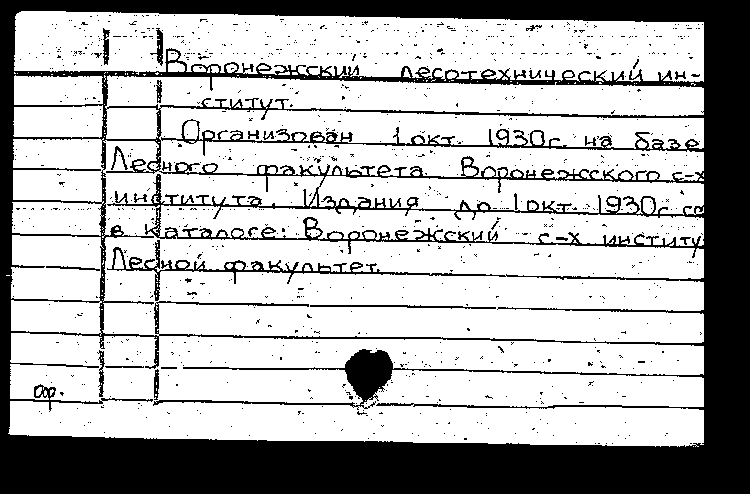 Воронежский лесотехнический ин-
ститут.
Организован 1 окт. 1930г. на базе
Лесного факультета Воронежского с-х
института. Издания до 1 окт. 1930г. см
в каталоге: Воронежский с-х институ
Лесной факультет.